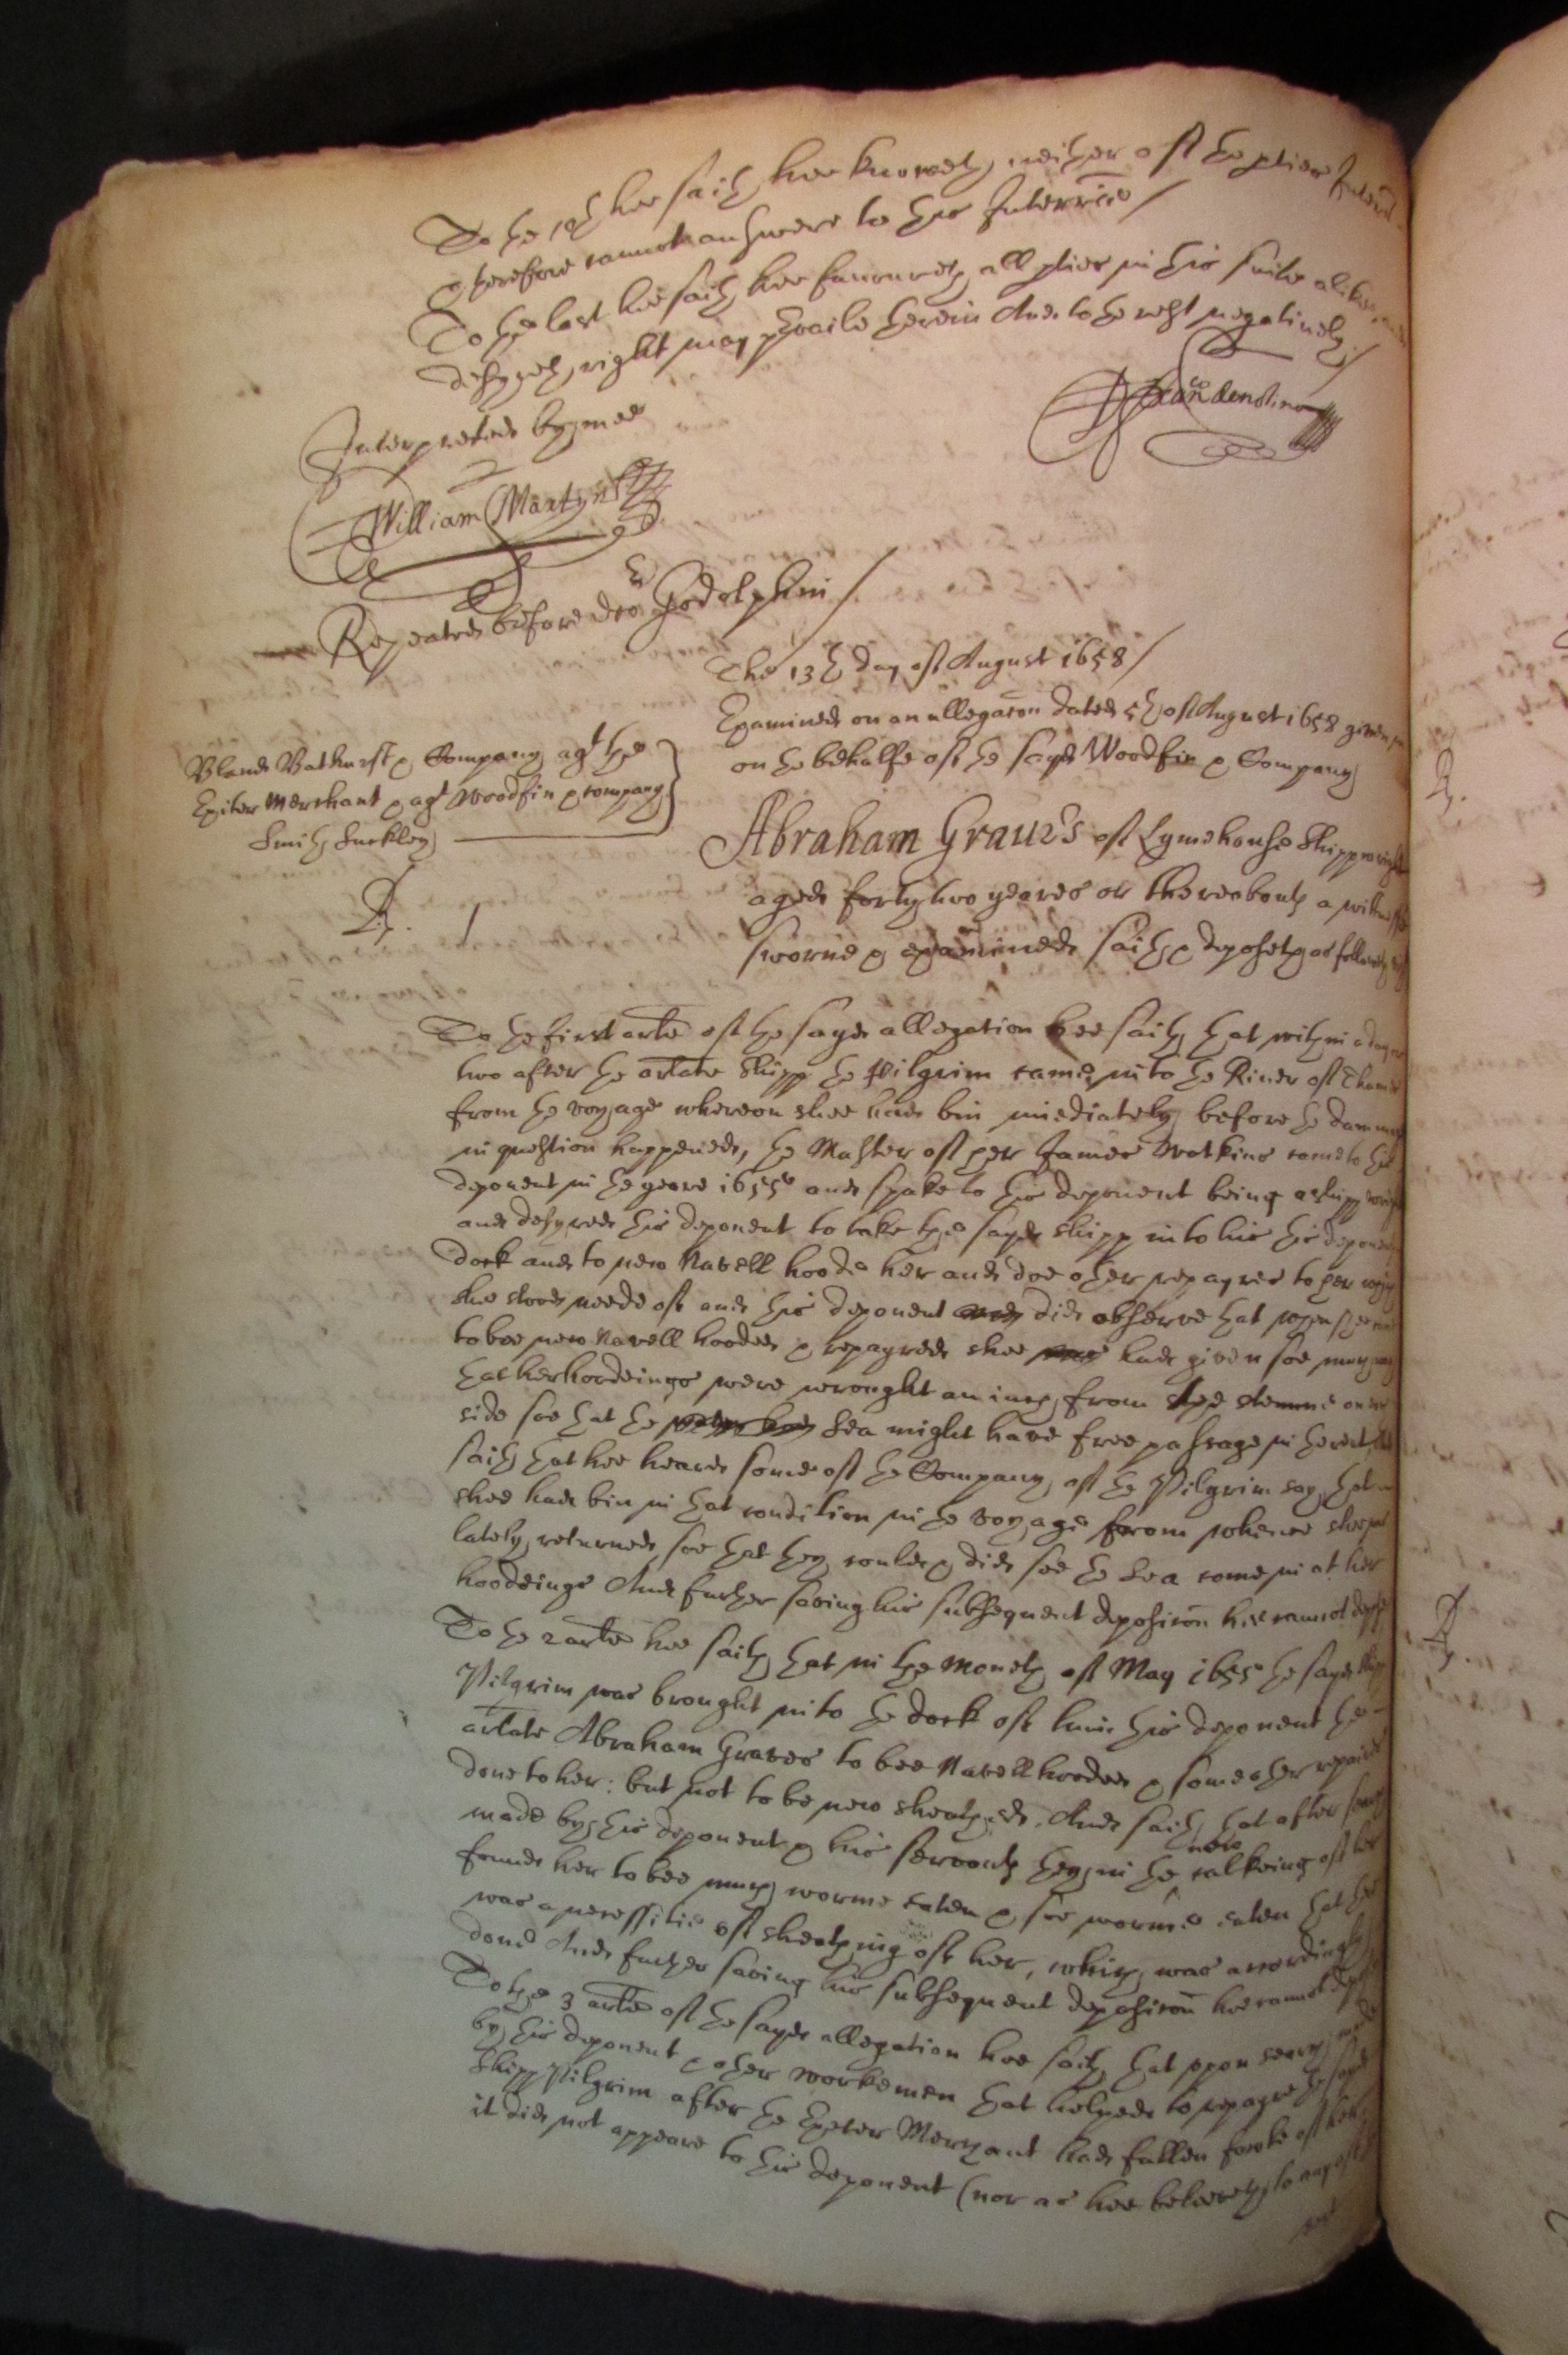 To the 10th hee saith hee knoweth neither of the p̱ties
& therefore cannot answere to this Interrie/
To the last hee saith hee favoureth all p̱ties in this suite alike
desyreth right may p̱vaile therein And to the rest negatively/
Interpreted by mee
William Martyn
Repeated before dcor Godolphin/
The 13th day of August 1658/
Examined on an allegacon dated 5th of August 1658 given
on the behalfe of the sayd Woodfin & Company
Bland Bathurst & Company agt the
Exiter Merchant & agt Woodfin & company
Smith Suckley
Abraham Graues of Lymehouse Shippwright
aged forty two yeares or thereabouts a witnesse
sworne & examined saith & deposeth as followeth
Rp. 1
To the first arte of the sayd allegation hee saith that within a day or
two after the arlate Shipp the Pilgrim came into the River of Thames
from the voyage whereon shee had bin imediately before the dammage
in question happened, the Master of her James Watkins came to this
deponent in the yeare 1655 and spake to this deponent being a shippwright
and desyred this deponent to take the sayd shipp into his this deponents
dock and to new Navell hoode her and doe other repayres to her
she stood neede of and this deponent did observe that when shee
to bee new Navell hooded & repayred shee had given soe much way
that her hoodeings were wrought an inch from the stemme on
side soe that the Sea might have free passage in thereat
saith that hee heard some of the Company of the Pilgrim say that
shee had bin in that condition in the voyage from whence shee
lately returned soe that they could & did see the Sea come in at her
hoodeings And further saving his subsequent deposicon hee cannot depose
To the 2 arte hee saith that in the moneth of May 1655 the sayd shipp
Pilgrim was brought into the dock of him this deponent the
arlate Abraham Graves to bee Navell hooded & some other repaires
done to her: but not to be new sheathed. And saith that after search
made by this deponent & his servants they in the new calkeing of her
found her to bee much worme eaten & soe worme eaten that there
was a necessitie of sheathing of her, which was accordingly
done And further saving his subsequent deposicon hee cannot depose
To the 3 arte of the sayd allegation hee saith that uppon search made
by this deponent & other workemen that helped to repayre the sayd
Shipp Pilgrim after the Exeter Merchant had fallen fowle of her
it did not appeare to this deponent (nor as hee beleeveth to any of